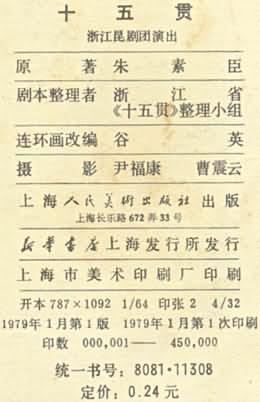 十五贯
浙江昆剧团演出
原著 朱素臣
剧本整理者 浙江省
《十五贯》整理小组
连环画改编 谷英
摄影 尹福康 曹震云
上海人民美術出版社出版
上海长乐路672弄33号
新华書店上海发行所发行
上海市美术印刷厂印刷
开本787×1092 1/64 印张2 4/32
1979年1月第1版 1979年1月第1次印刷
印数 000,001—— 450,000
统一书号：8081·11308
定价：0.24元